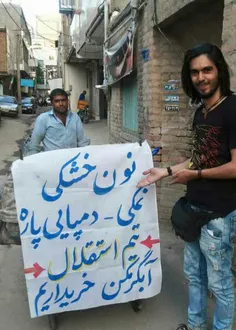 نون خشکی
نمکی - دمپایی پاره
تیم استقلال
آبگرمکن خریداریم